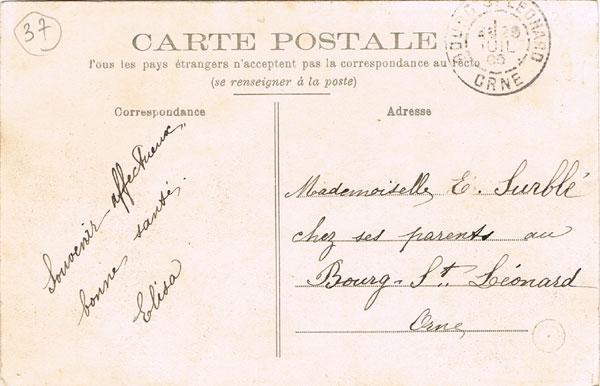 37
CARTE POSTALE
Tous les pays étrangers n'acceptent pas la correspondance au recto
(se renseigner à la poste)
Correspondance
Adresse
Souvenir affectueux
bonne santé.
Elisa
Mademoiselle E. Surblé
chez ses parents au
Bourg-St Léonard
Orne
BOURG-ST LEONARD
JUIL
ORNE